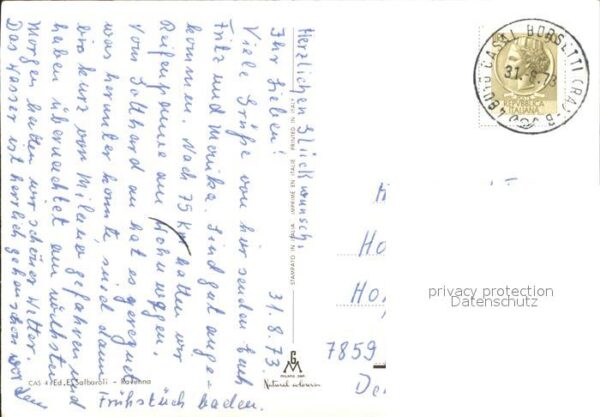 Herzlichen Glückwunsch,
31.8.73
Ihr Lieben!
Viele Grüße von hier senden Euch
Fritz und Monika. Sind gut ange-
kommen. Nach 75 km hatten wir
Reifenpanne am Wohnwagen.
Vom Gotthard an hat es geregnet
was herunter konnte, sind dann
bis kurz vor Milano gefahren und
haben übernachtet am nächsten
Morgen hatten wir schönes Wetter.
Das Wasser ist herrlich gehen schon vor dem
Frühstück baden.
CAS 4 - Ed. E. Salbaroli - Ravenna
STAMPATO IN ITALIA IMPRIMÉ EN ITALIE PRINTED IN ITALY
GM
48010 CASAL BORSETTI (RA)
31.8.73
REPVBBLICA
ITALIANA
Ho
Ho
7859
privacy protection
Datenschutz